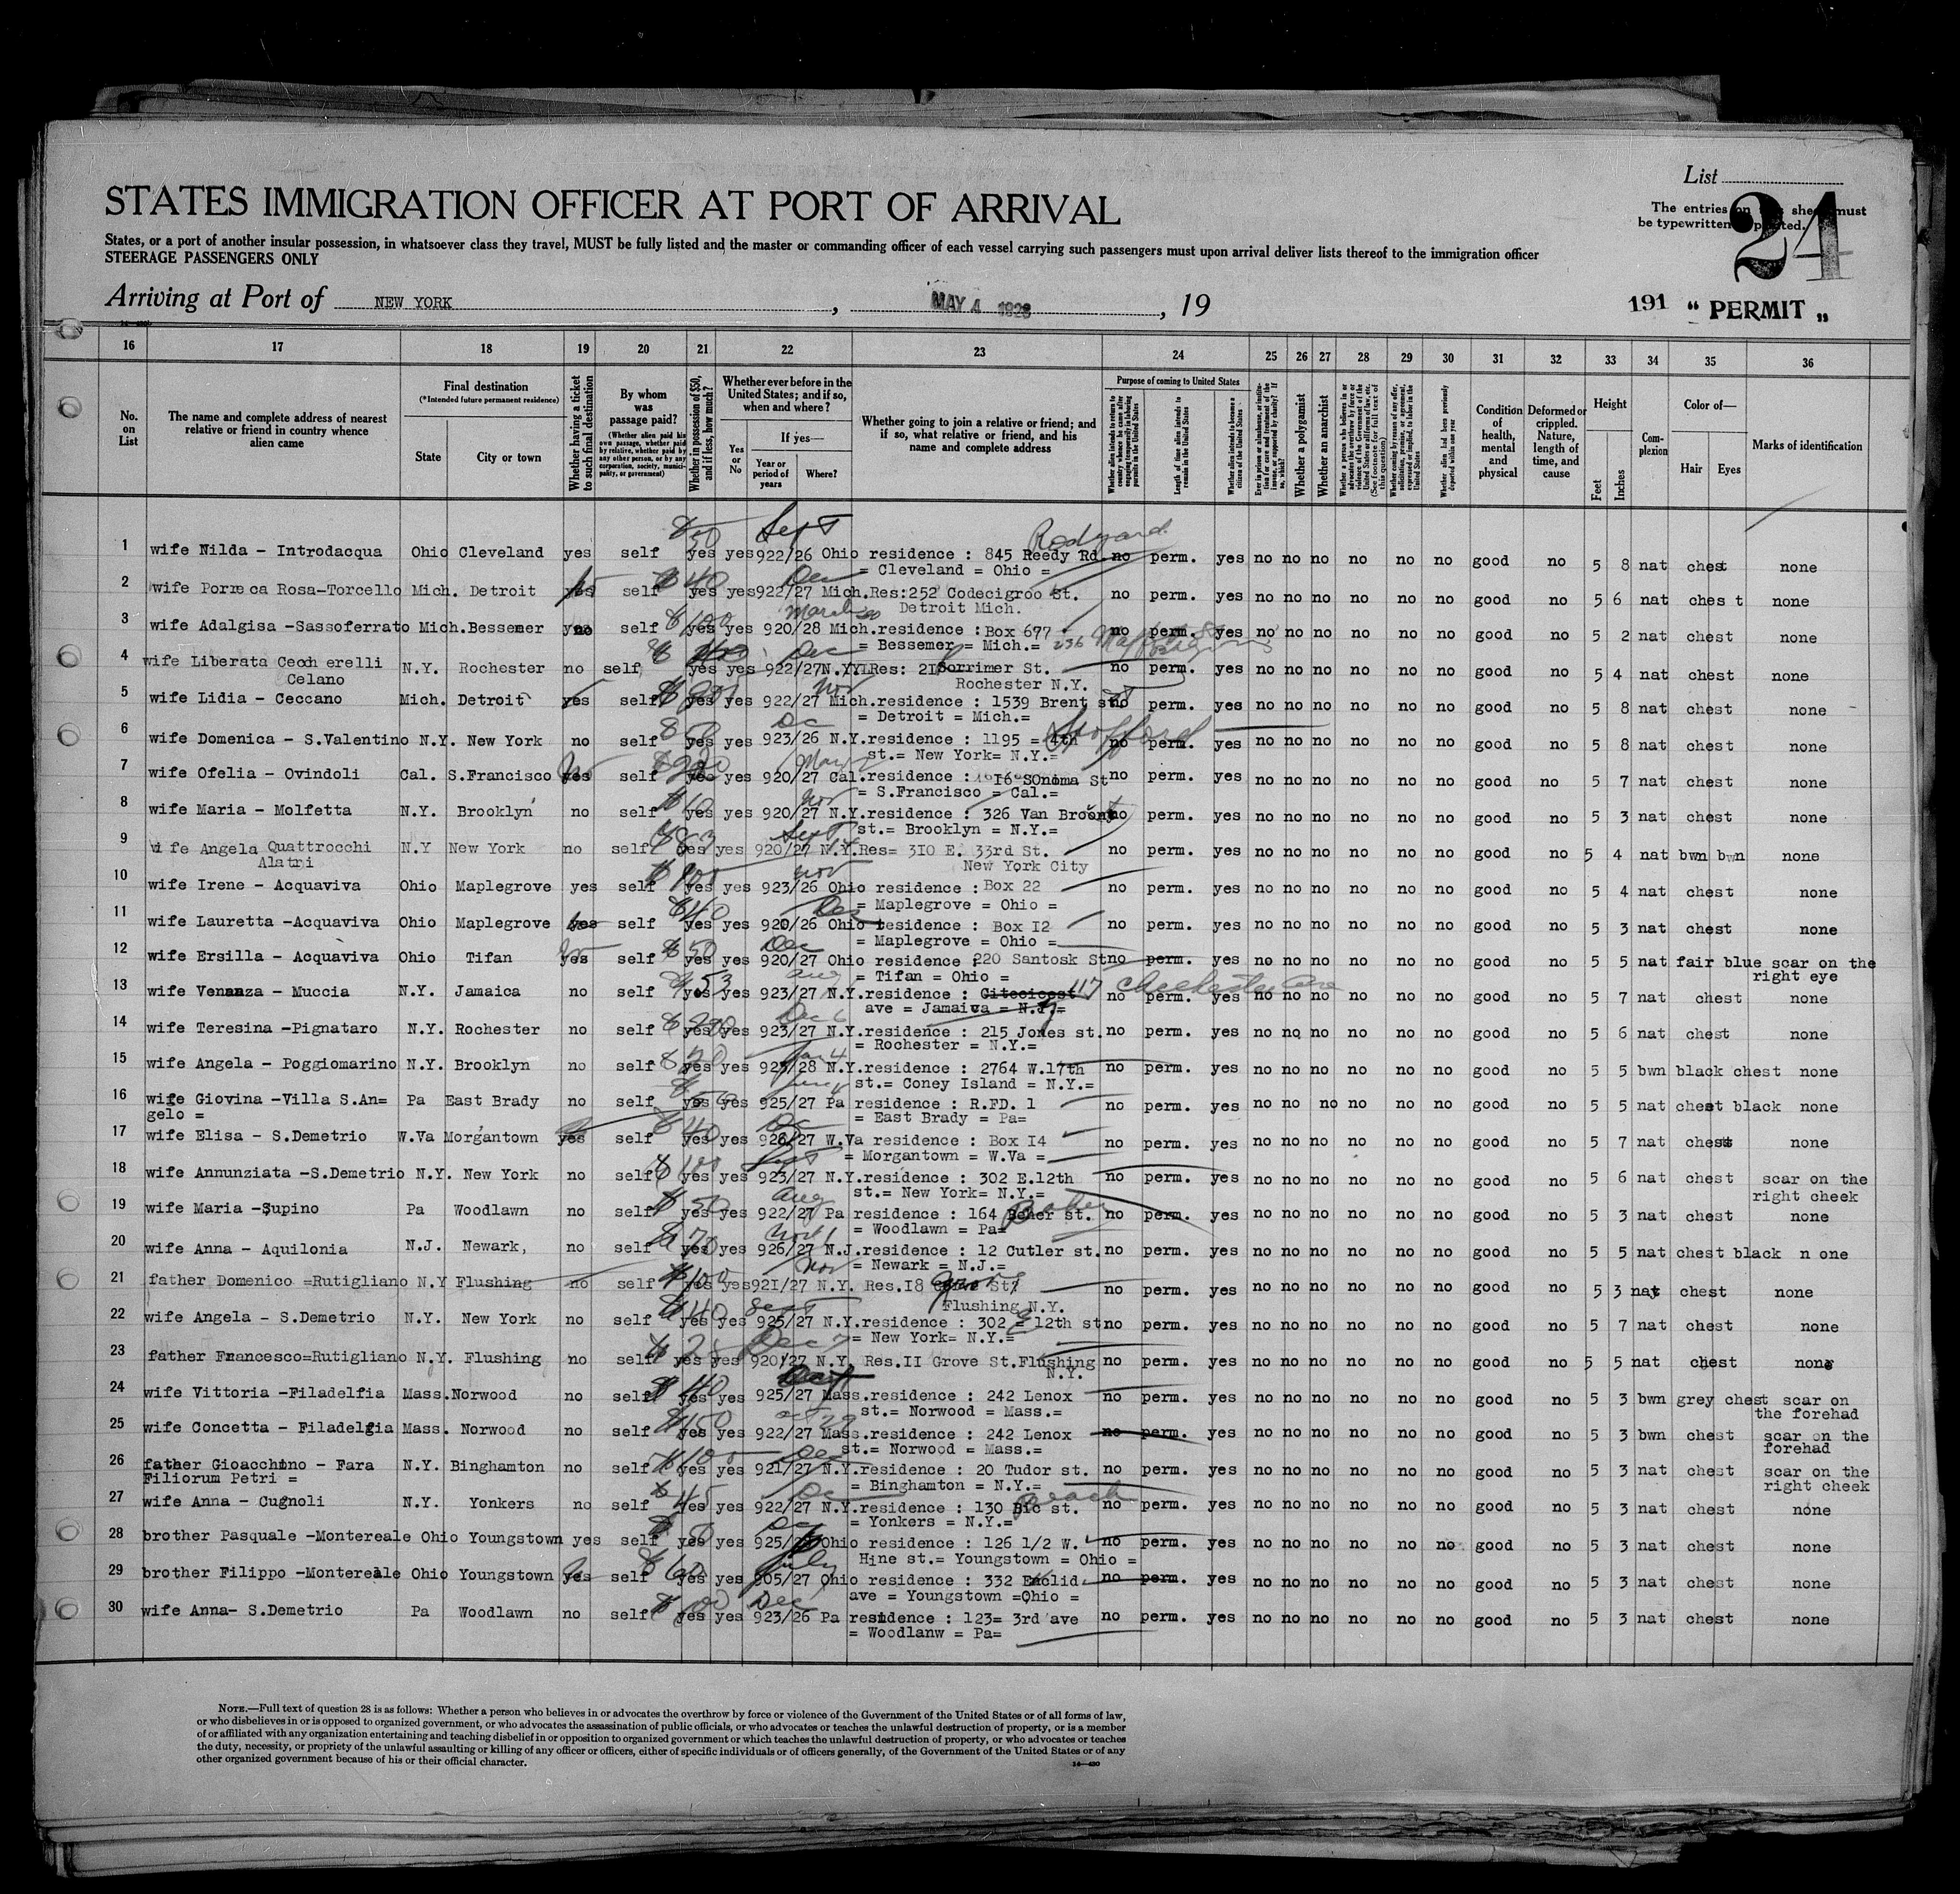 List
24
The entries on this sheet must
be typewritten or printed.
STATES IMMIGRATION OFFICER AT PORT OF ARRIVAL
States, or a port of another insular possession, in whatsoever class they travel, MUST be fully listed and the master or commanding officer of each vessel carrying such passengers must upon arrival deliver lists thereof to the immigration officer
STEERAGE PASSENGERS ONLY
Arriving at Port of NEW YORK, MAY 4 1928, 19
191 " PERMIT „
16 17 18 19 20 21 22 23 24 25 26 27 28 29 30 31 32 33 34 35 36
No. on List
The name and complete address of nearest relative or friend in country whence alien came
Final destination
(*Intended future permanent residence)
State
City or town
Whether having a ticket to such final destination
By whom was passage paid?
(Whether alien paid his own passage, whether paid by relative, whether paid by any other person, or by any corporation, society, municipality, or government)
Whether in possession of $50, and if less, how much?
Whether ever before in the United States; and if so, when and where?
Yes or No
If yes—
Year or period of years
Where?
Whether going to join a relative or friend; and if so, what relative or friend, and his name and complete address
Purpose of coming to United States
Length of time alien intends to remain in the United States
Whether alien intends to become a citizen of the United States
Whether a polygamist
Whether an anarchist
Condition of health, mental and physical
Deformed or crippled. Nature, length of time, and cause
Height
Feet
Inches
Complexion
Color of—
Hair
Eyes
Marks of identification
1 wife Nilda - Introdacqua Ohio Cleveland yes self yes yes 922/26 Ohio residence : 845 Reedy Rd. no perm. yes no no no no no no good no 5 8 nat chest none
= Cleveland = Ohio =
2 wife Porreca Rosa-Torcello Mich. Detroit yes self yes yes 922/27 Mich.Res:252 Codecigroo St. no perm. yes no no no no no no good no 5 6 nat chest none
Detroit Mich.
3 wife Adalgisa -Sassoferrato Mich. Bessemer self yes yes 920/28 Mich.residence : Box 677 no perm. yes no no no no no no good no 5 2 nat chest none
= Bessemer = Mich.=
4 wife Liberata Cecch erelli N.Y. Rochester no self yes yes 922/27 N.Y. Res: Lorrimer St. no perm. yes no no no no no no good no 5 4 nat chest none
Celano
Rochester N.Y.
5 wife Lidia - Ceccano Mich. Detroit yes self yes yes 922/27 Mich.residence : 1539 Brent st. no perm. yes no no no no no no good no 5 8 nat chest none
= Detroit = Mich.=
6 wife Domenica - S.Valentino N.Y. New York no self yes yes 923/26 N.Y.residence : 1195 = 4th no perm. yes no no no no no no good no 5 8 nat chest none
st.= New York= N.Y.=
7 wife Ofelia - Ovindoli Cal. S.Francisco yes self yes yes 920/27 Cal.residence : I6 SOnoma St no perm. yes no no no no no no good no 5 7 nat chest none
= S.Francisco = Cal.=
8 wife Maria - Molfetta N.Y. Brooklyn no self yes yes 920/27 N.Y.residence : 326 Van Broont no perm. yes no no no no no no good no 5 3 nat chest none
st.= Brooklyn = N.Y.=
9 wife Angela Quattrocchi N.Y New York no self yes yes 920/27 N.Y.Res= 3I0 E. 33rd St. no perm. yes no no no no no no good no 5 4 nat bwn bwn none
Alatri
New York City
10 wife Irene - Acquaviva Ohio Maplegrove yes self yes yes 923/26 Ohio residence : Box 22 no perm. yes no no no no no no good no 5 4 nat chest none
= Maplegrove = Ohio =
11 wife Lauretta -Acquaviva Ohio Maplegrove yes self yes yes 920/26 Ohio residence : Box I2 no perm. yes no no no no no no good no 5 3 nat chest none
= Maplegrove = Ohio =
12 wife Ersilla - Acquaviva Ohio Tifan yes self yes yes 920/27 Ohio residence : 220 Santosk St no perm. yes no no no no no no good no 5 5 nat fair blue scar on the
= Tifan = Ohio =
right eye
13 wife Venanza - Muccia N.Y. Jamaica no self yes yes 923/27 N.Y.residence : 117 no perm. yes no no no no no no good no 5 7 nat chest none
ave = Jamaica = N.Y.=
14 wife Teresina -Pignataro N.Y. Rochester no self yes yes 923/27 N.Y.residence : 215 Jones st. no perm. yes no no no no no no good no 5 6 nat chest none
= Rochester = N.Y.=
15 wife Angela - Poggiomarino N.Y. Brooklyn no self yes yes 923/28 N.Y.residence : 2764 W.17th no perm. yes no no no no no no good no 5 5 bwn black chest none
st.= Coney Island = N.Y.=
16 wife Giovina -Villa S.An= Pa East Brady no self yes yes 925/27 Pa residence : R.FD. 1 no perm. yes no no no no no no good no 5 5 nat chest black none
gelo =
= East Brady = Pa=
17 wife Elisa - S.Demetrio W.Va Morgantown yes self yes yes 926/27 W.Va residence : Box I4 no perm. yes no no no no no no good no 5 7 nat chest none
= Morgantown = W.Va =
18 wife Annunziata -S.Demetrio N.Y. New York no self yes yes 923/27 N.Y.residence : 302 E.12th no perm. yes no no no no no no good no 5 6 nat chest scar on the
st.= New York= N.Y.=
right cheek
19 wife Maria -Supino Pa Woodlawn no self yes yes 922/27 Pa residence : 164 Beher st. Baker no perm. yes no no no no no no good no 5 3 nat chest none
= Woodlawn = Pa=
20 wife Anna - Aquilonia N.J. Newark, no self yes yes 926/27 N.J.residence : 12 Cutler st. no perm. yes no no no no no no good no 5 5 nat chest black n one
= Newark = N.J.=
21 father Domenico =Rutigliano N.Y Flushing no self yes yes 92I/27 N.Y. Res.I8 Grove St. no perm. yes no no no no no no good no 5 3 nat chest none
Flushing N.Y.
22 wife Angela - S.Demetrio N.Y. New York no self yes yes 925/27 N.Y.residence : 302 E 12th st no perm. yes no no no no no no good no 5 7 nat chest none
= New York= N.Y.=
23 father Francesco=Rutigliano N.Y. Flushing no self yes yes 920/27 N.Y. Res.II Grove St.Flushing no perm. yes no no no no no no good no 5 5 nat chest none
N.Y.
24 wife Vittoria -Filadelfia Mass. Norwood no self yes yes 925/27 Mass.residence : 242 Lenox no perm. yes no no no no no no good no 5 3 bwn grey chest scar on
st.= Norwood = Mass.=
the forehad
25 wife Concetta - Filadelgia Mass. Norwood no self yes yes 922/27 Mass.residence : 242 Lenox no perm. yes no no no no no no good no 5 3 bwn chest scar on the
st.= Norwood = Mass.=
forehad
26 father Gioacchino - Fara N.Y. Binghamton no self yes yes 921/27 N.Y.residence : 20 Tudor st. no perm. yes no no no no no no good no 5 3 nat chest scar on the
Filiorum Petri =
= Binghamton = N.Y.=
right cheek
27 wife Anna - Cugnoli N.Y. Yonkers no self yes yes 922/27 N.Y.residence : 130 st. no perm. yes no no no no no no good no 5 3 nat chest none
= Yonkers = N.Y.=
28 brother Pasquale -Montereale Ohio Youngstown yes self yes yes Ohio residence : 126 1/2 W. no perm. yes no no no no no no good no 5 3 nat chest none
Hine st.= Youngstown = Ohio =
29 brother Filippo -Montereale Ohio Youngstown yes self yes yes 905/27 Ohio residence : 332 Euclid no perm. yes no no no no no no good no 5 3 nat chest none
ave = Youngstown =Ohio =
30 wife Anna- S.Demetrio Pa Woodlawn no self yes yes 923/26 Pa residence : 123= 3rd ave no perm. yes no no no no no no good no 5 3 nat chest none
= Woodlanw = Pa=
NOTE.—Full text of question 28 is as follows: Whether a person who believes in or advocates the overthrow by force or violence of the Government of the United States or of all forms of law,
or who disbelieves in or is opposed to organized government, or who advocates the assassination of public officials, or who advocates or teaches the unlawful destruction of property, or is a member
of or affiliated with any organization entertaining and teaching disbelief in or opposition to organized government or which teaches the unlawful destruction of property, or who advocates or teaches
the duty, necessity, or propriety of the unlawful assaulting or killing of any officer or officers, either of specific individuals or of officers generally, of the Government of the United States or of any
other organized government because of his or their official character.